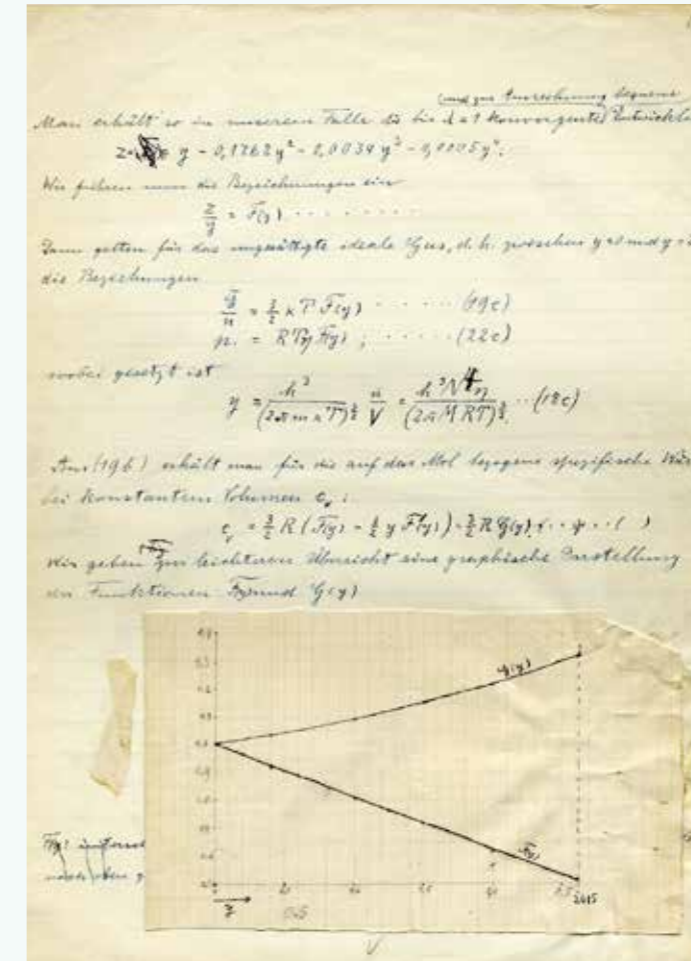 (und zur Ausrechnung bequeme
Man erhält so in unserem Falle die bis λ=1 konvergente) Entwicklu
z = y - 0,1768 y² - 0,0034 y³ - 0,0005 y⁴.
Wir führen nun die Bezeichnungen ein
z/y = F(y) · · · · · · · · ·
Dann gelten für das ungesättigte ideale Gas, d. h. zwischen y=0 und y =
die Beziehungen
Ē/n = 3/2 κ T F(y) · · · · · · (19c)
p = R T η F(y) ; · · · · · (22c)
wobei gesetzt ist
y = h³/(2πmκT)^3/2 n/V = h³N⁴η/(2πMRT)^3/2 · · (18c)
Aus (19b) erhält man für die auf das Mol bezogene spezifische Wär
bei konstantem Volumen cᵥ :
cᵥ = 3/2 R (F(y) - 3/2 y F'(y)) = 3/2 R G(y)
Wir geben zur leichteren Übersicht eine graphische Darstellung
der Funktionen F(y) und G(y)
G(y)
F(y)
2,615